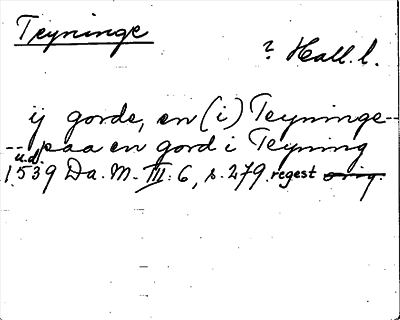 Teyninge
? Hall. l.
ij gorde, en (i) Teyninge --
-- paa en gord i Teyning
u.d.
1539 Da. M. III: 6, s. 279. regest orig.